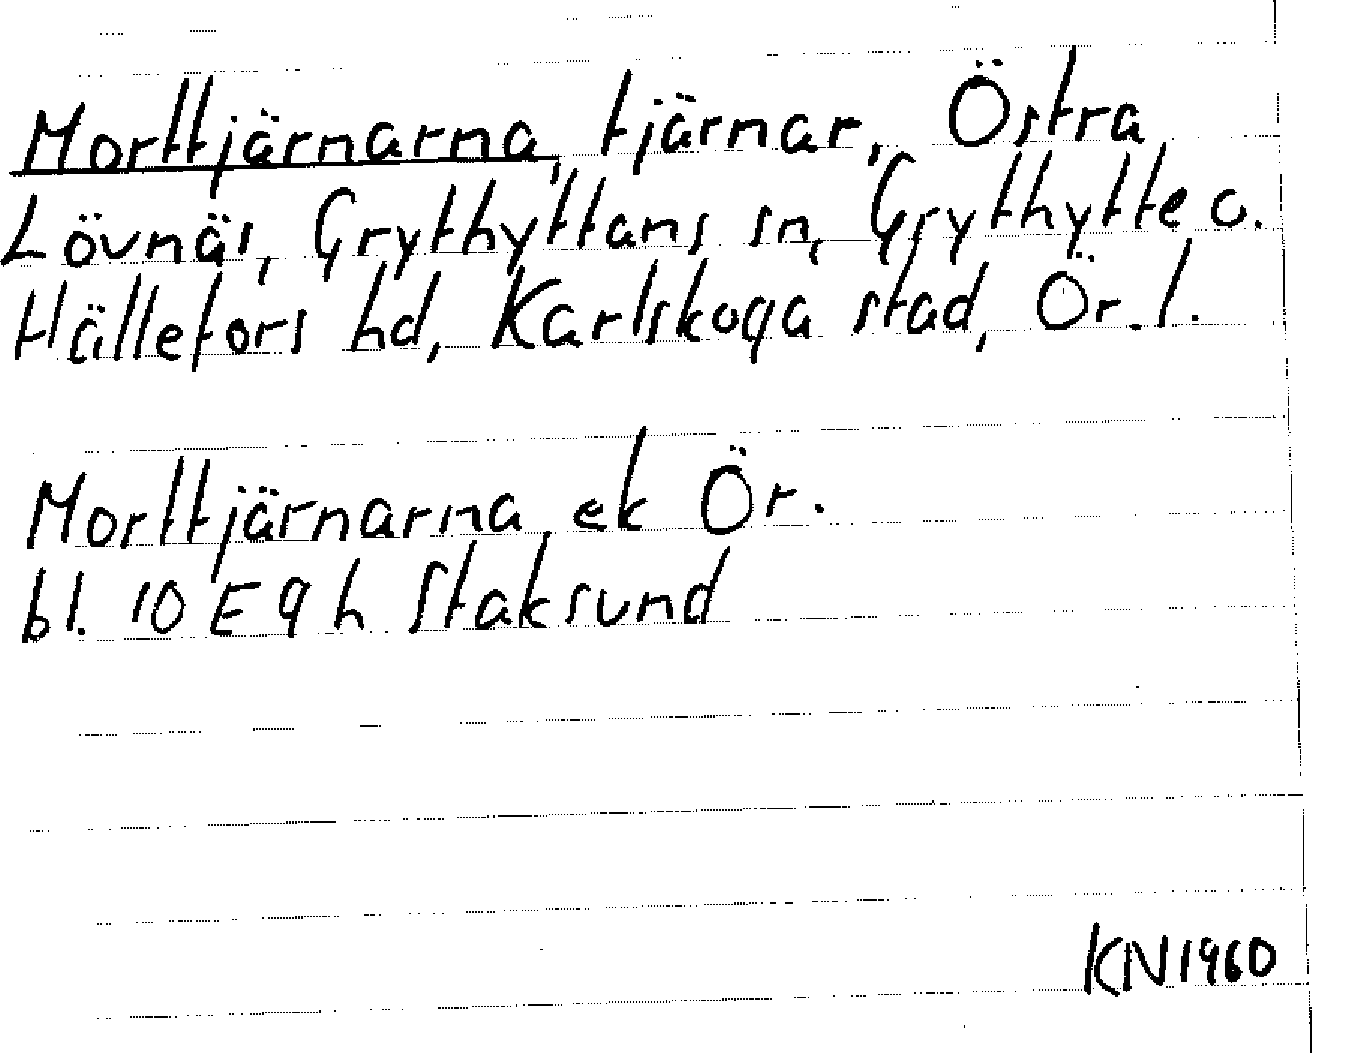 Morttjärnarna, tjärnar, Östra
Lövnäs, Grythyttans sn, Grythytte o.
Hällefors hd, Karlskoga stad, Ör. l.
Morttjärnarna ek Ör.
bl. 10 E 9 h Staksund
KN1960